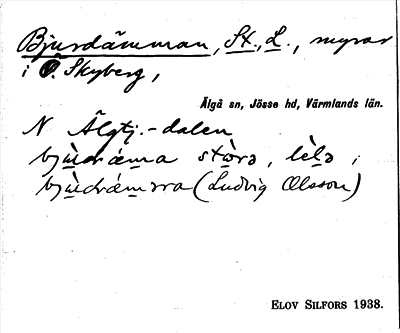 Bjurdämman, St., L., myrar
i Ö. Skyberg,
Älgå sn, Jösse hd, Värmlands län.
N Älgtj.-dalen
bjùdráma stòrə, lèlə;
bjùdrámrra (Ludvig Olsson)
ELOV SILFORS 1938.